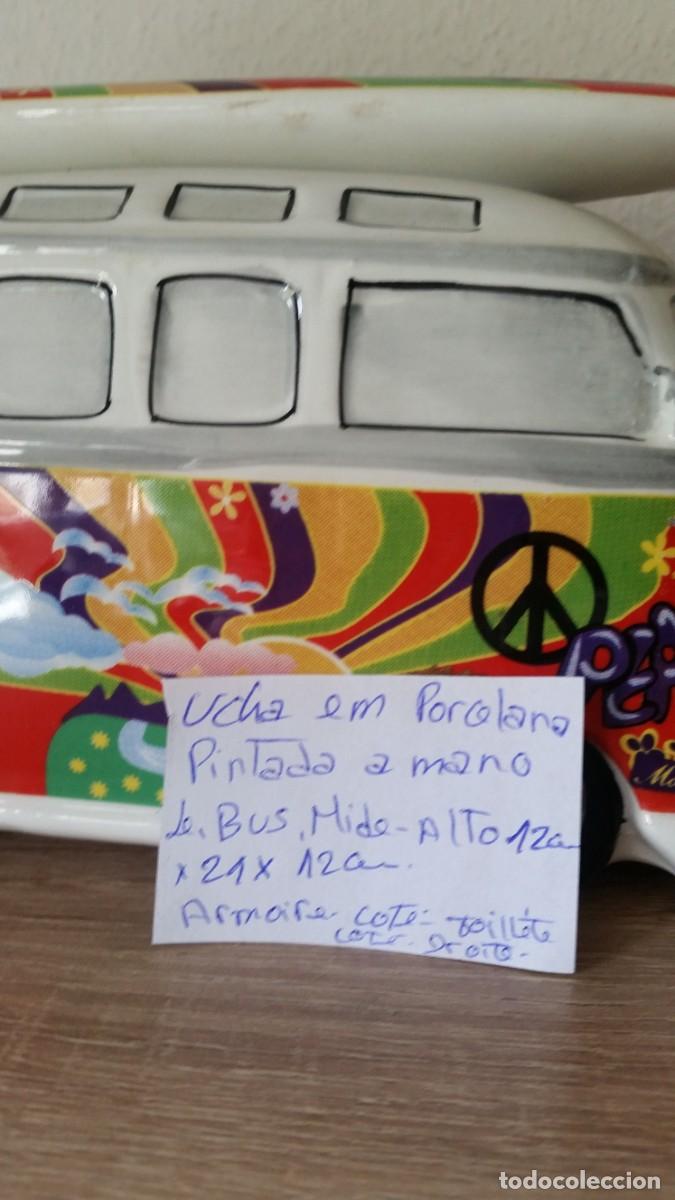 PEA
Mo
Ucha em Porcelana
Pintada a mano
de. BUS. Mide - Alto 12cm
x 21 x 12cm.
Armoire cote - toillète
cote. Droite -
todocoleccion